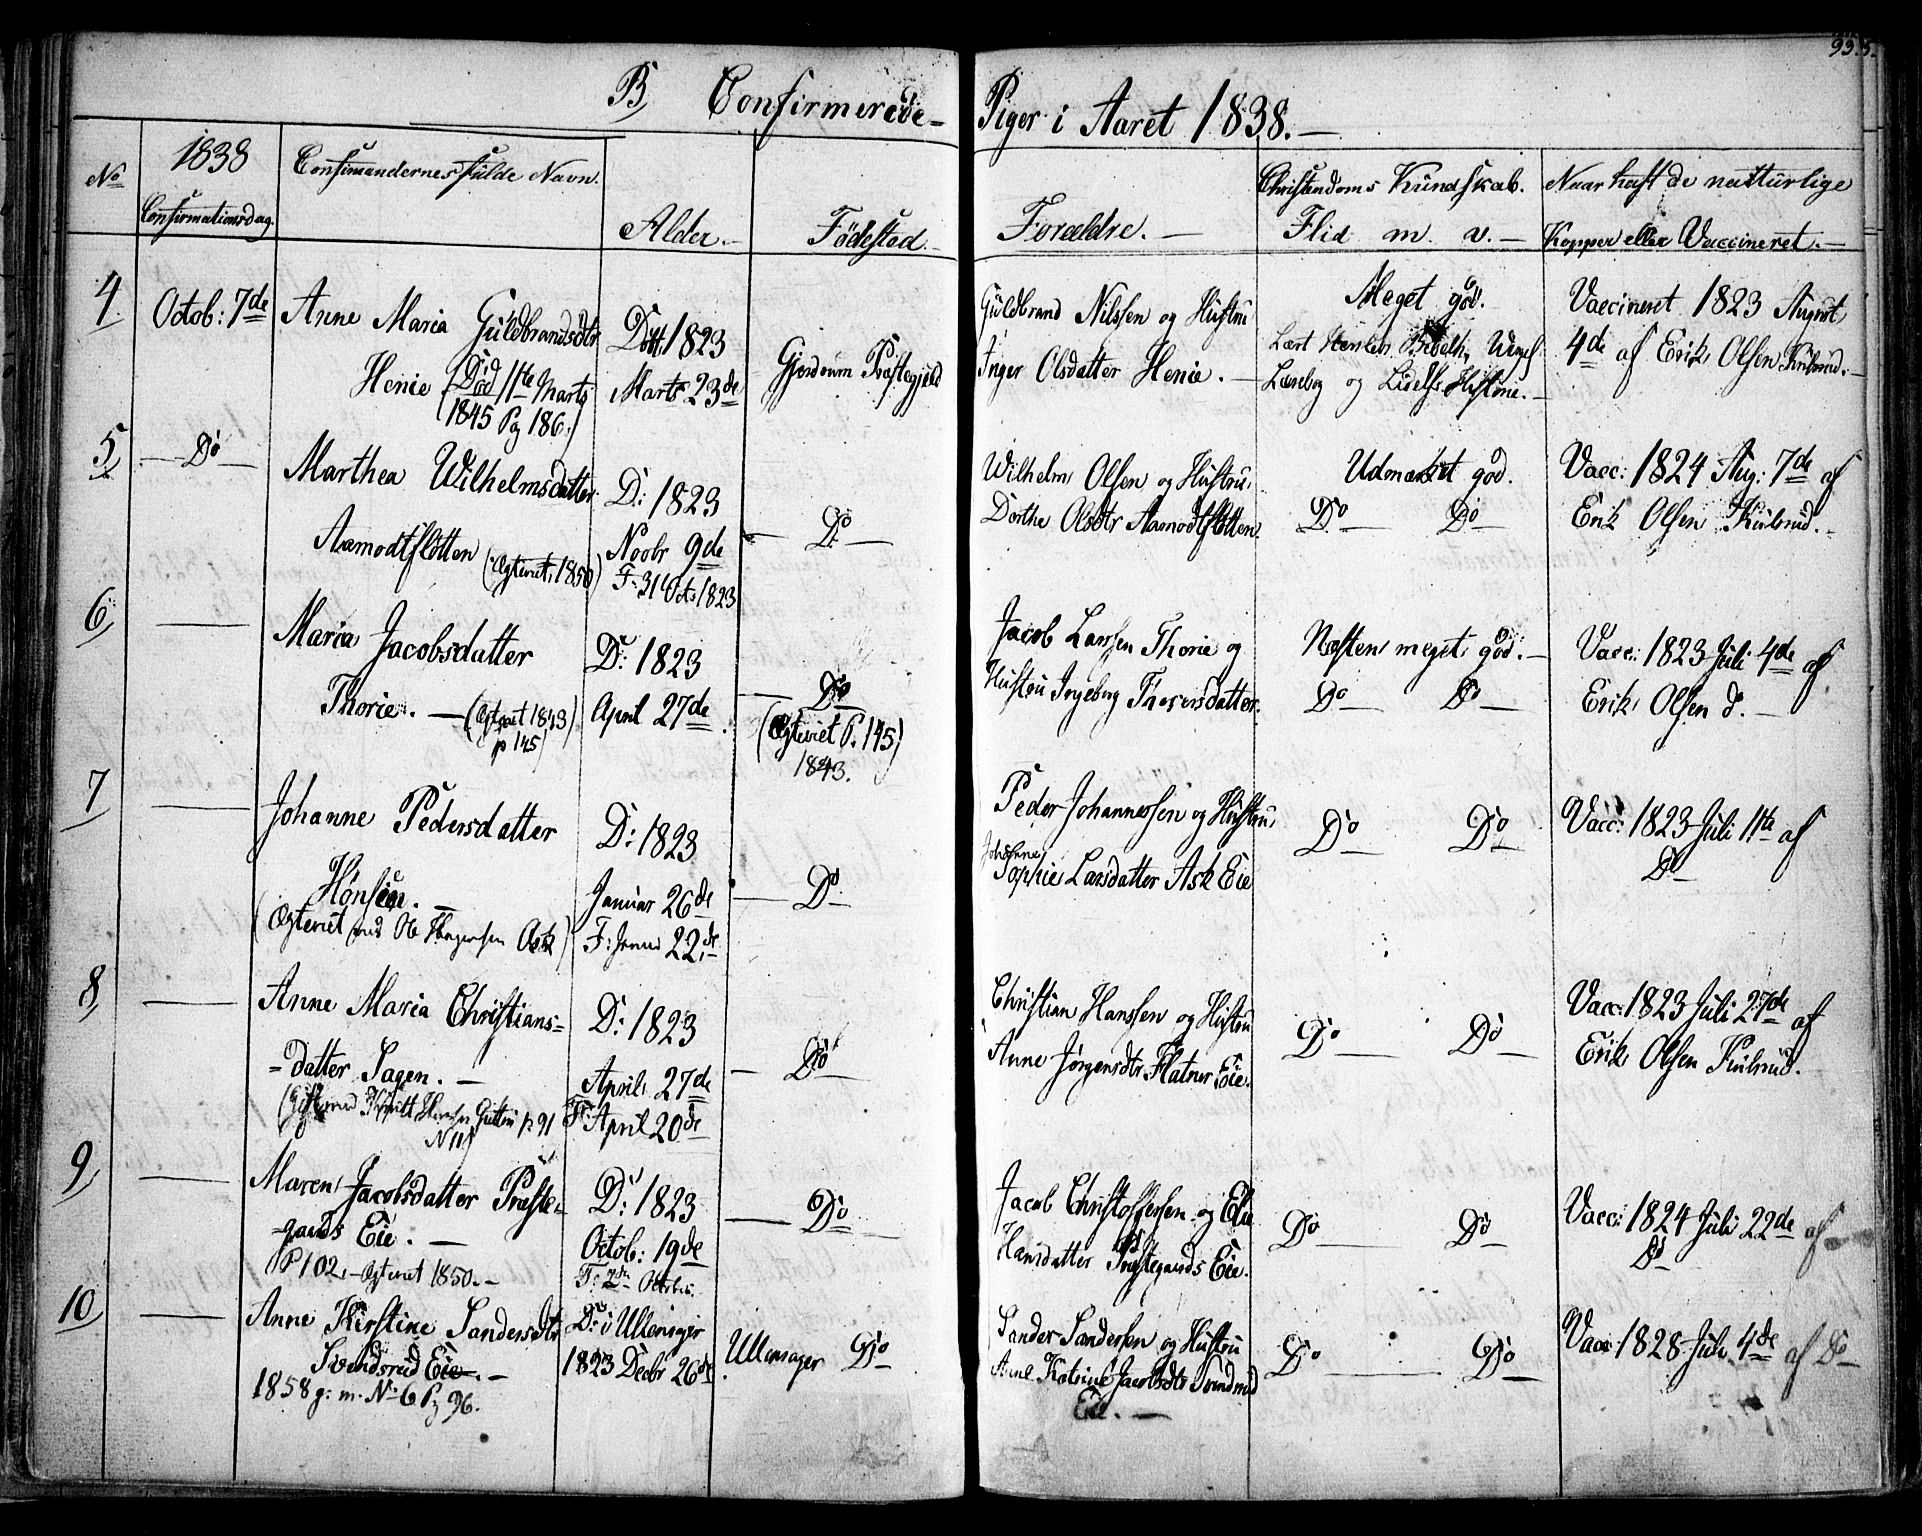 B, Confirmerede- Piger i Aaret 1838. -
93.
No
1838
Confirmationsdag.
Confirmandernes fulde Navn.
Alder. -
Fødested. -
Forældre. -
Christendoms Kundskab.
Flid m. v. -
Naar haft de naturlige
Kopper eller Vaccineret. -
4.
Octob: 7de
Anne Maria Guldbrandsdtr
Henie (Død 11te Marts
1845 Pag 186.)
1823
Marts 23de
Gjerdrum Præstegjeld
Guldbrand Nilssen og Hustru
Inger Olsdatter Henie. -
Meget god.
Lært
Læsebog og Historie. -
Vaccineret 1823 August
4de af Erik Olsen Kulsrud. -
5,
- Do -
Marthea Wilhelmsdatter
Aamodtflotten (Ægteviet 1850)
D: 1823
Novbr 9de
F: 31 Oct 1823
- Do -
Wilhelm Olsen og Hustru
Dorthe Olsdtr Aamodtflotten.
Udmærket god.
Do - Do -
Vacc: 1824 Aug: 7de af
Erik Olsen Kulsrud. -
6,
-
Maria Jacobsdatter
Thorie. - (Ægteviet 1843
p 145)
D: 1823
April 27de
- Do -
(Ægteviet P. 145)
1843.
Jacob Larssen Thorie og
Hustru Ingeborg Thorersdatter.
Næsten meget god. -
Do - Do -
Vacc: 1823 Juli 4de af
Erik Olsen d. -
7,
-
Johanne Pedersdatter
Hønsen. -
(Ægteviet med Ole Ask)
D: 1823
Januar 26de
F: Januar 22de -
- Do -
Peder Johannessen og Hustru
Johanne
Sophie Larsdatter Ask Eie
Do - Do -
Vacc: 1823 Juli 11te af
Do
8,
-
Anne Maria Christians=
=datter Sagen. -
(Gift med Hansen p 91
N 11)
D: 1823
April 27de
F: April 20de
- Do -
Christian Hanssen og Hustru
Anne Jørgensdtr Flatner Eie.
Do - Do -
Vacc: 1823 Juli 27de af
Erik Olsen Kulsrud.
9,
-
Maren Jacobsdatter Præste=
=gaards Eie. -
P 102. - Ægteviet 1850. -
D: 1823
Octob: 19de
F: 7de October.
- Do -
Jacob Christoffersen og Elie
Hansdatter Præstegaards Eie.
Do - Do -
Vacc: 1824 Juli 22de af
Do -
10,
-
Anne Kirstine Sandersdtr
Svendsrud Eie. -
1858 g: m. No 6 Pag 96.
Do i Ullensager
1823 Decbr 26de
Ullensager Do
Sander Sandersen og Hustru
Anne Katrine Jacobsdtr Svendsrud
Eie. -
Do - Do -
Vacc 1828 Juli 4de af Do -